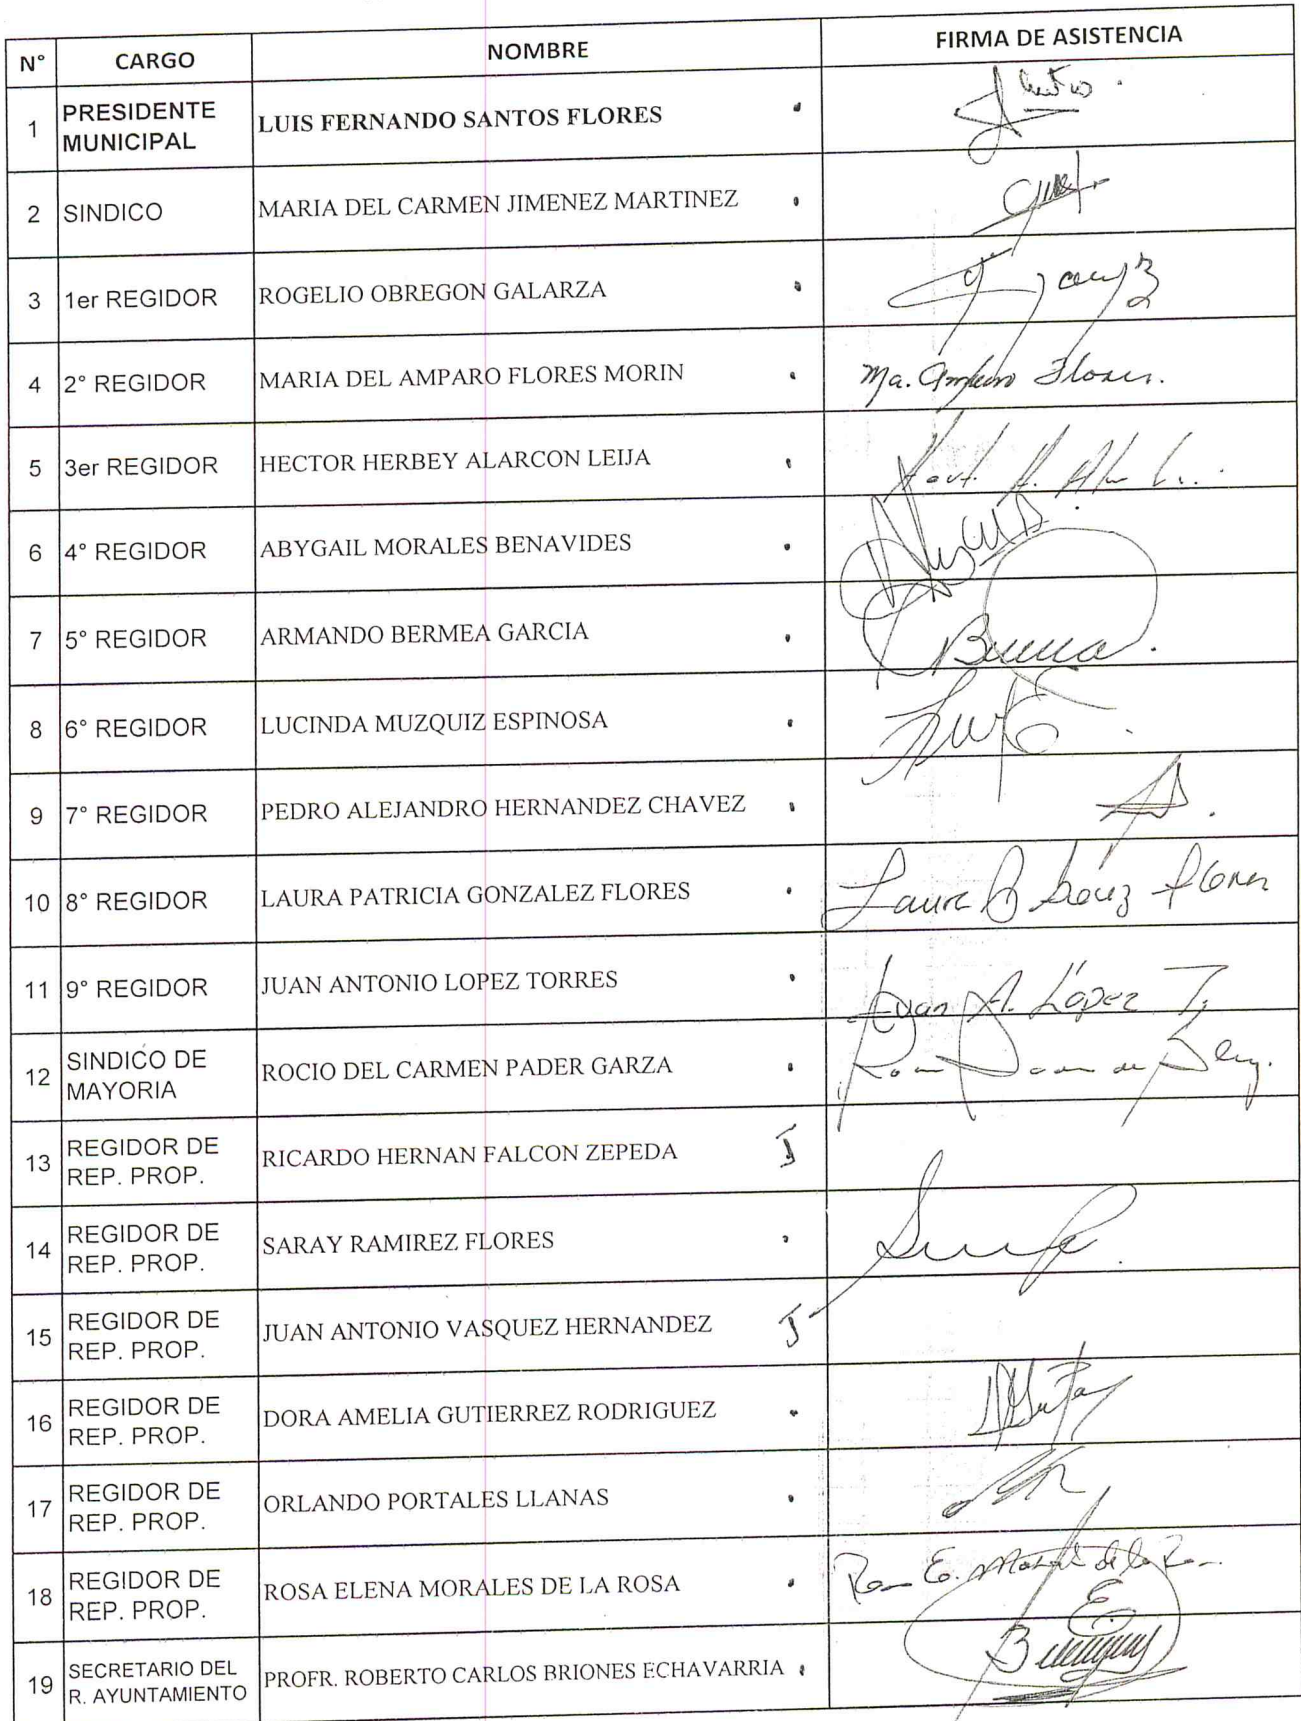 N° CARGO NOMBRE FIRMA DE ASISTENCIA
1 PRESIDENTE MUNICIPAL LUIS FERNANDO SANTOS FLORES
2 SINDICO MARIA DEL CARMEN JIMENEZ MARTINEZ
3 1er REGIDOR ROGELIO OBREGON GALARZA
4 2° REGIDOR MARIA DEL AMPARO FLORES MORIN Ma. Amparo Flores.
5 3er REGIDOR HECTOR HERBEY ALARCON LEIJA
6 4° REGIDOR ABYGAIL MORALES BENAVIDES
7 5° REGIDOR ARMANDO BERMEA GARCIA
8 6° REGIDOR LUCINDA MUZQUIZ ESPINOSA
9 7° REGIDOR PEDRO ALEJANDRO HERNANDEZ CHAVEZ
10 8° REGIDOR LAURA PATRICIA GONZALEZ FLORES Laura P Flores
11 9° REGIDOR JUAN ANTONIO LOPEZ TORRES Juan A. López T.
12 SINDICO DE MAYORIA ROCIO DEL CARMEN PADER GARZA
13 REGIDOR DE REP. PROP. RICARDO HERNAN FALCON ZEPEDA J
14 REGIDOR DE REP. PROP. SARAY RAMIREZ FLORES
15 REGIDOR DE REP. PROP. JUAN ANTONIO VASQUEZ HERNANDEZ J
16 REGIDOR DE REP. PROP. DORA AMELIA GUTIERREZ RODRIGUEZ
17 REGIDOR DE REP. PROP. ORLANDO PORTALES LLANAS
18 REGIDOR DE REP. PROP. ROSA ELENA MORALES DE LA ROSA
19 SECRETARIO DEL R. AYUNTAMIENTO PROFR. ROBERTO CARLOS BRIONES ECHAVARRIA